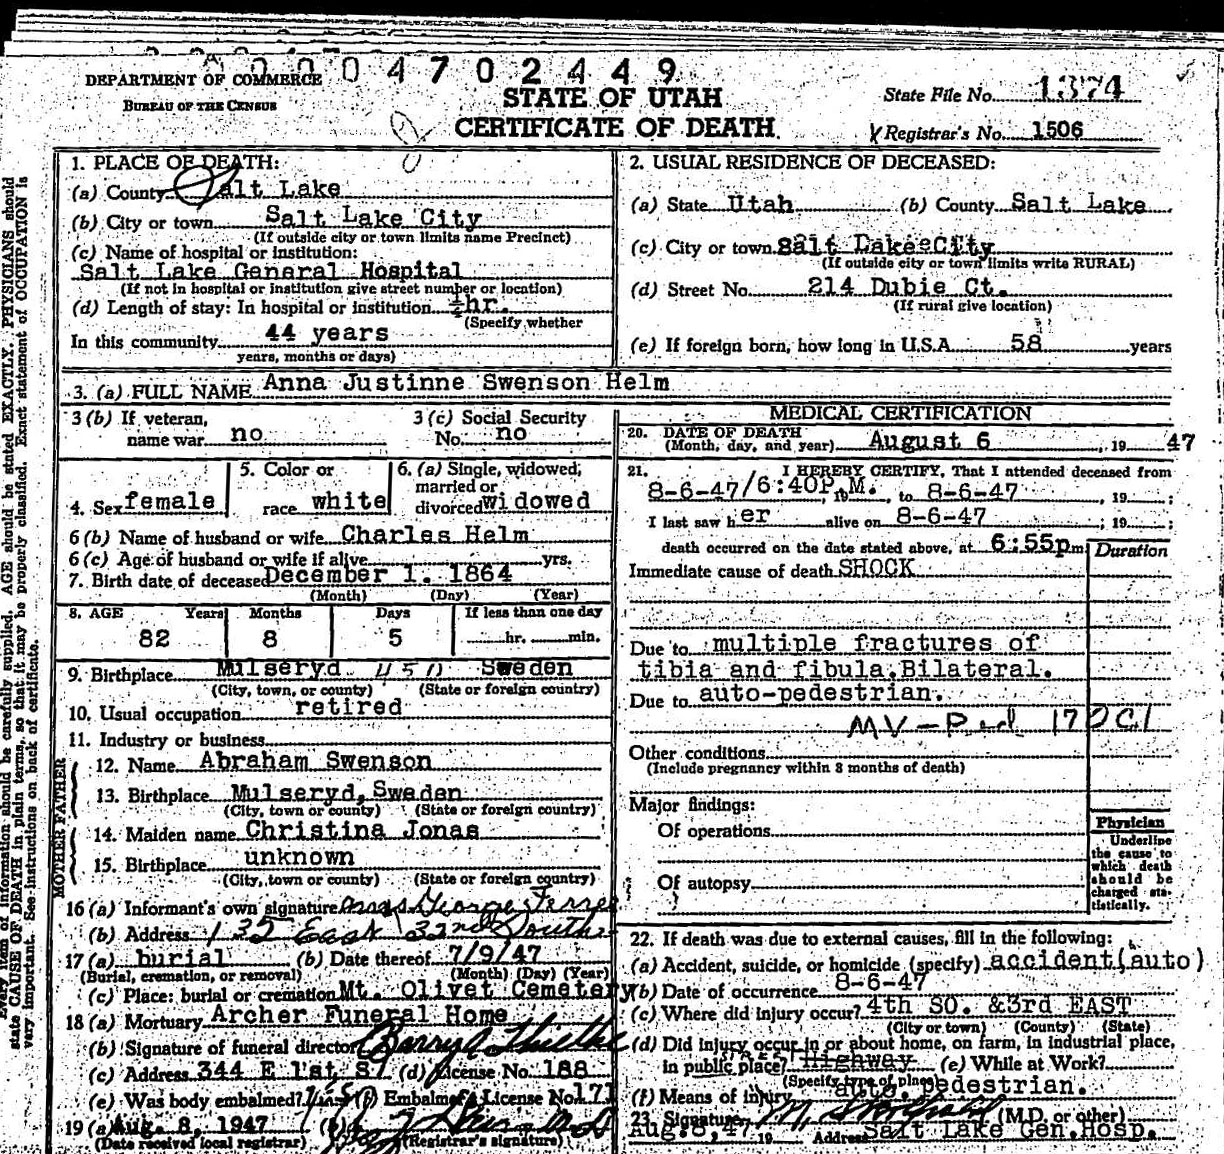 0 0 0 4 7 0 2 4 4 9
DEPARTMENT OF COMMERCE
BUREAU OF THE CENSUS
STATE OF UTAH
CERTIFICATE OF DEATH
State File No. 1374
Registrar's No. 1506
1. PLACE OF DEATH:
(a) County Salt Lake
(b) City or town Salt Lake City
(If outside city or town limits name Precinct)
(c) Name of hospital or institution:
Salt Lake General Hospital
(If not in hospital or institution give street number or location)
(d) Length of stay: In hospital or institution ½hr.
(Specify whether
In this community 44 years
years, months or days)
2. USUAL RESIDENCE OF DECEASED:
(a) State Utah (b) County Salt Lake
(c) City or town Salt Lake City
(If outside city or town limits write RURAL)
(d) Street No. 214 Dubie Ct.
(If rural give location)
(e) If foreign born, how long in U.S.A. 58 years
3. (a) FULL NAME Anna Justinne Swenson Helm
3 (b) If veteran, name war no
3 (c) Social Security No. no
4. Sex female
5. Color or race white
6. (a) Single, widowed, married or divorced widowed
6 (b) Name of husband or wife Charles Helm
6 (c) Age of husband or wife if alive yrs.
7. Birth date of deceased December 1. 1864
(Month) (Day) (Year)
8. AGE Years Months Days If less than one day
82 8 5 hr. min.
9. Birthplace Mulseryd Sweden
(City, town, or county) (State or foreign country)
10. Usual occupation retired
11. Industry or business
FATHER
12. Name Abraham Swenson
13. Birthplace Mulseryd, Sweden
(City, town or county) (State or foreign country)
MOTHER
14. Maiden name Christina Jonas
15. Birthplace unknown
(City, town or county) (State or foreign country)
16 (a) Informant's own signature Mrs George Ferre
(b) Address 135 East 32nd South
17 (a) burial (b) Date thereof 7/9/47
(Burial, cremation, or removal) (Month) (Day) (Year)
(c) Place: burial or cremation Mt. Olivet Cemetery
18 (a) Mortuary Archer Funeral Home
(b) Signature of funeral director
(c) Address 344 E 1st S (d) License No. 188
(e) Was body embalmed? yes (f) Embalmer's License No. 171
19 (a) Aug. 8, 1947 (b)
(Date received local registrar) (Registrar's signature)
MEDICAL CERTIFICATION
20. DATE OF DEATH
(Month, day, and year) August 6, 19 47
21. I HEREBY CERTIFY, That I attended deceased from
8-6-47/6:40P.M., 19 to 8-6-47, 19 ;
I last saw her alive on 8-6-47 ; 19 ;
death occurred on the date stated above, at 6:55pm
Duration
Immediate cause of death SHOCK
Due to multiple fractures of
tibia and fibula.Bilateral.
Due to auto-pedestrian.
MV-Ped 170C1
Other conditions
(Include pregnancy within 3 months of death)
Major findings:
Of operations
Of autopsy
Physician
Underline
the cause to
which death
should be
charged sta-
tistically.
22. If death was due to external causes, fill in the following:
(a) Accident, suicide, or homicide (specify) accident(auto)
(b) Date of occurrence 8-6-47
(c) Where did injury occur? 4th SO. &3rd EAST
(City or town) (County) (State)
(d) Did injury occur in or about home, on farm, in industrial place,
in public place? STREET Highway (e) While at Work?
(Specify type of place)
(f) Means of injury auto-pedestrian.
23. Signature (M.D. or other)
Aug.8,47 19 Address Salt Lake Gen.Hosp.
Every item of information should be carefully supplied. AGE should be stated EXACTLY. PHYSICIANS should
state CAUSE OF DEATH in plain terms, so that it may be properly classified. Exact statement of OCCUPATION is
very important. See instructions on back of certificate.